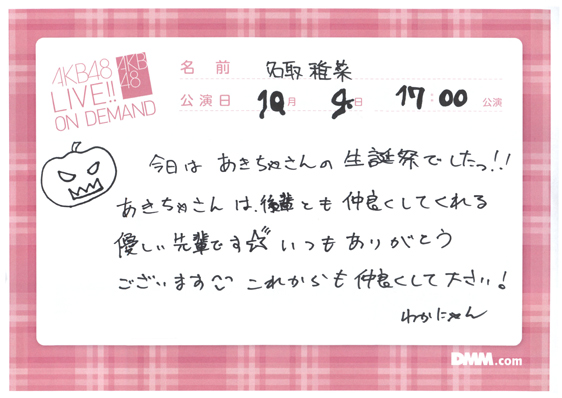 AKB48
LIVE!!
ON DEMAND
AKB
48
名前 名取稚菜
公演日 10月 4日 17:00 公演
今日は あきちゃさんの 生誕祭でしたっ!!
あきちゃさんは、後輩とも 仲良くしてくれる
優しい 先輩です☆ いつも ありがとう
ございます これからも 仲良くして 下さい!
わかにゃん
DMM.com